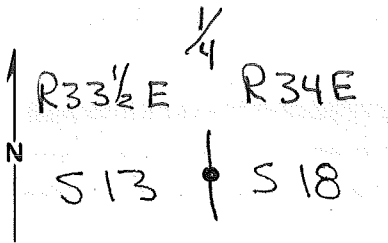 1/4
R33 1/2 E R34E
N
S 13 S 18